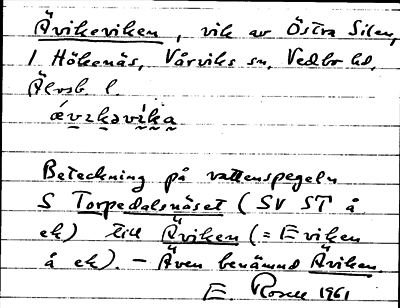 Ävikeviken, vik av Östra Silen,
i Hökenäs, Vårviks sn, Vedbo hd,
Älvsb. l.
ávɩkəvìka
Beteckning på vattenspegeln
S Torpedalsnäset (SV ST å
ek) till Äviken (= E viken
å ek). – Även benämnd Äviken.
E. Rosell 1961